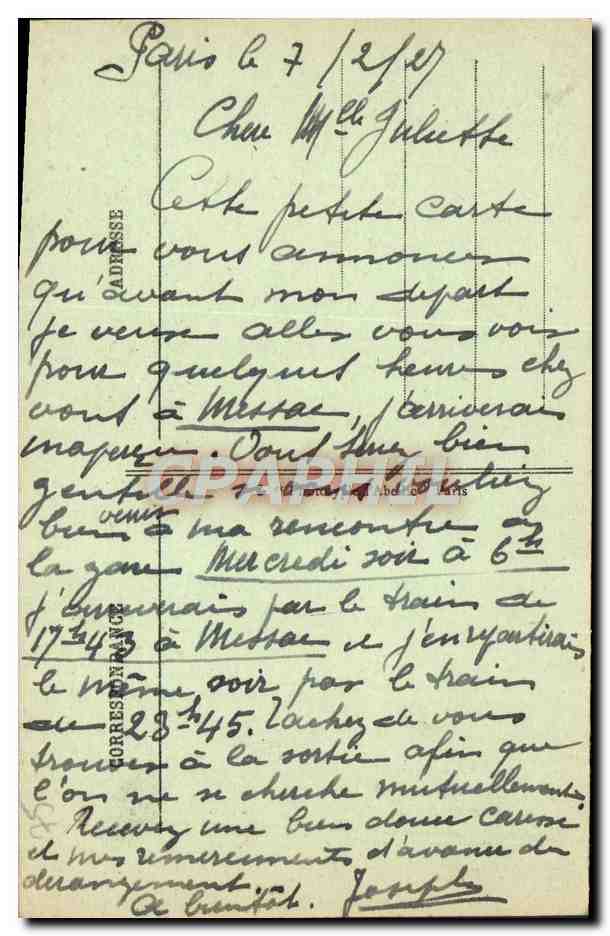 Paris le 7/2/27
Chere Mlle Juliette
Cette petite carte
pour vous annoncer
qu'avant mon depart
je veux aller vous voir
pour quelques heures chez
vous à Messac, j'arriverais
inaperçu. Vous serez bien
gentille si vous vouliez
bien venir à ma rencontre à
la gare Mercredi soir à 6h
j'arriverais par le train de
17h43 à Messac et j'en repartirais
le même soir par le train
de 23h45. Tachez de vous
trouver à la sortie afin que
l'on ne se cherche mutuellement
Recevez une bien douce caresse
et mes remerciements d'avance du
derangement.
A bientôt. Joseph
ADRESSE
CORRESPONDANCE
Paris
CPAPHIL